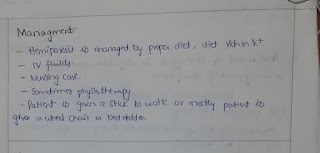 Managment
- Hemiparesis is managed by proper diet, diet rich in K+.
- IV fluids
- Nursing care.
- Sometimes physiotherapy.
- Patient is given a stick to walk or mostly patient is
given a wheel chair or bedridden